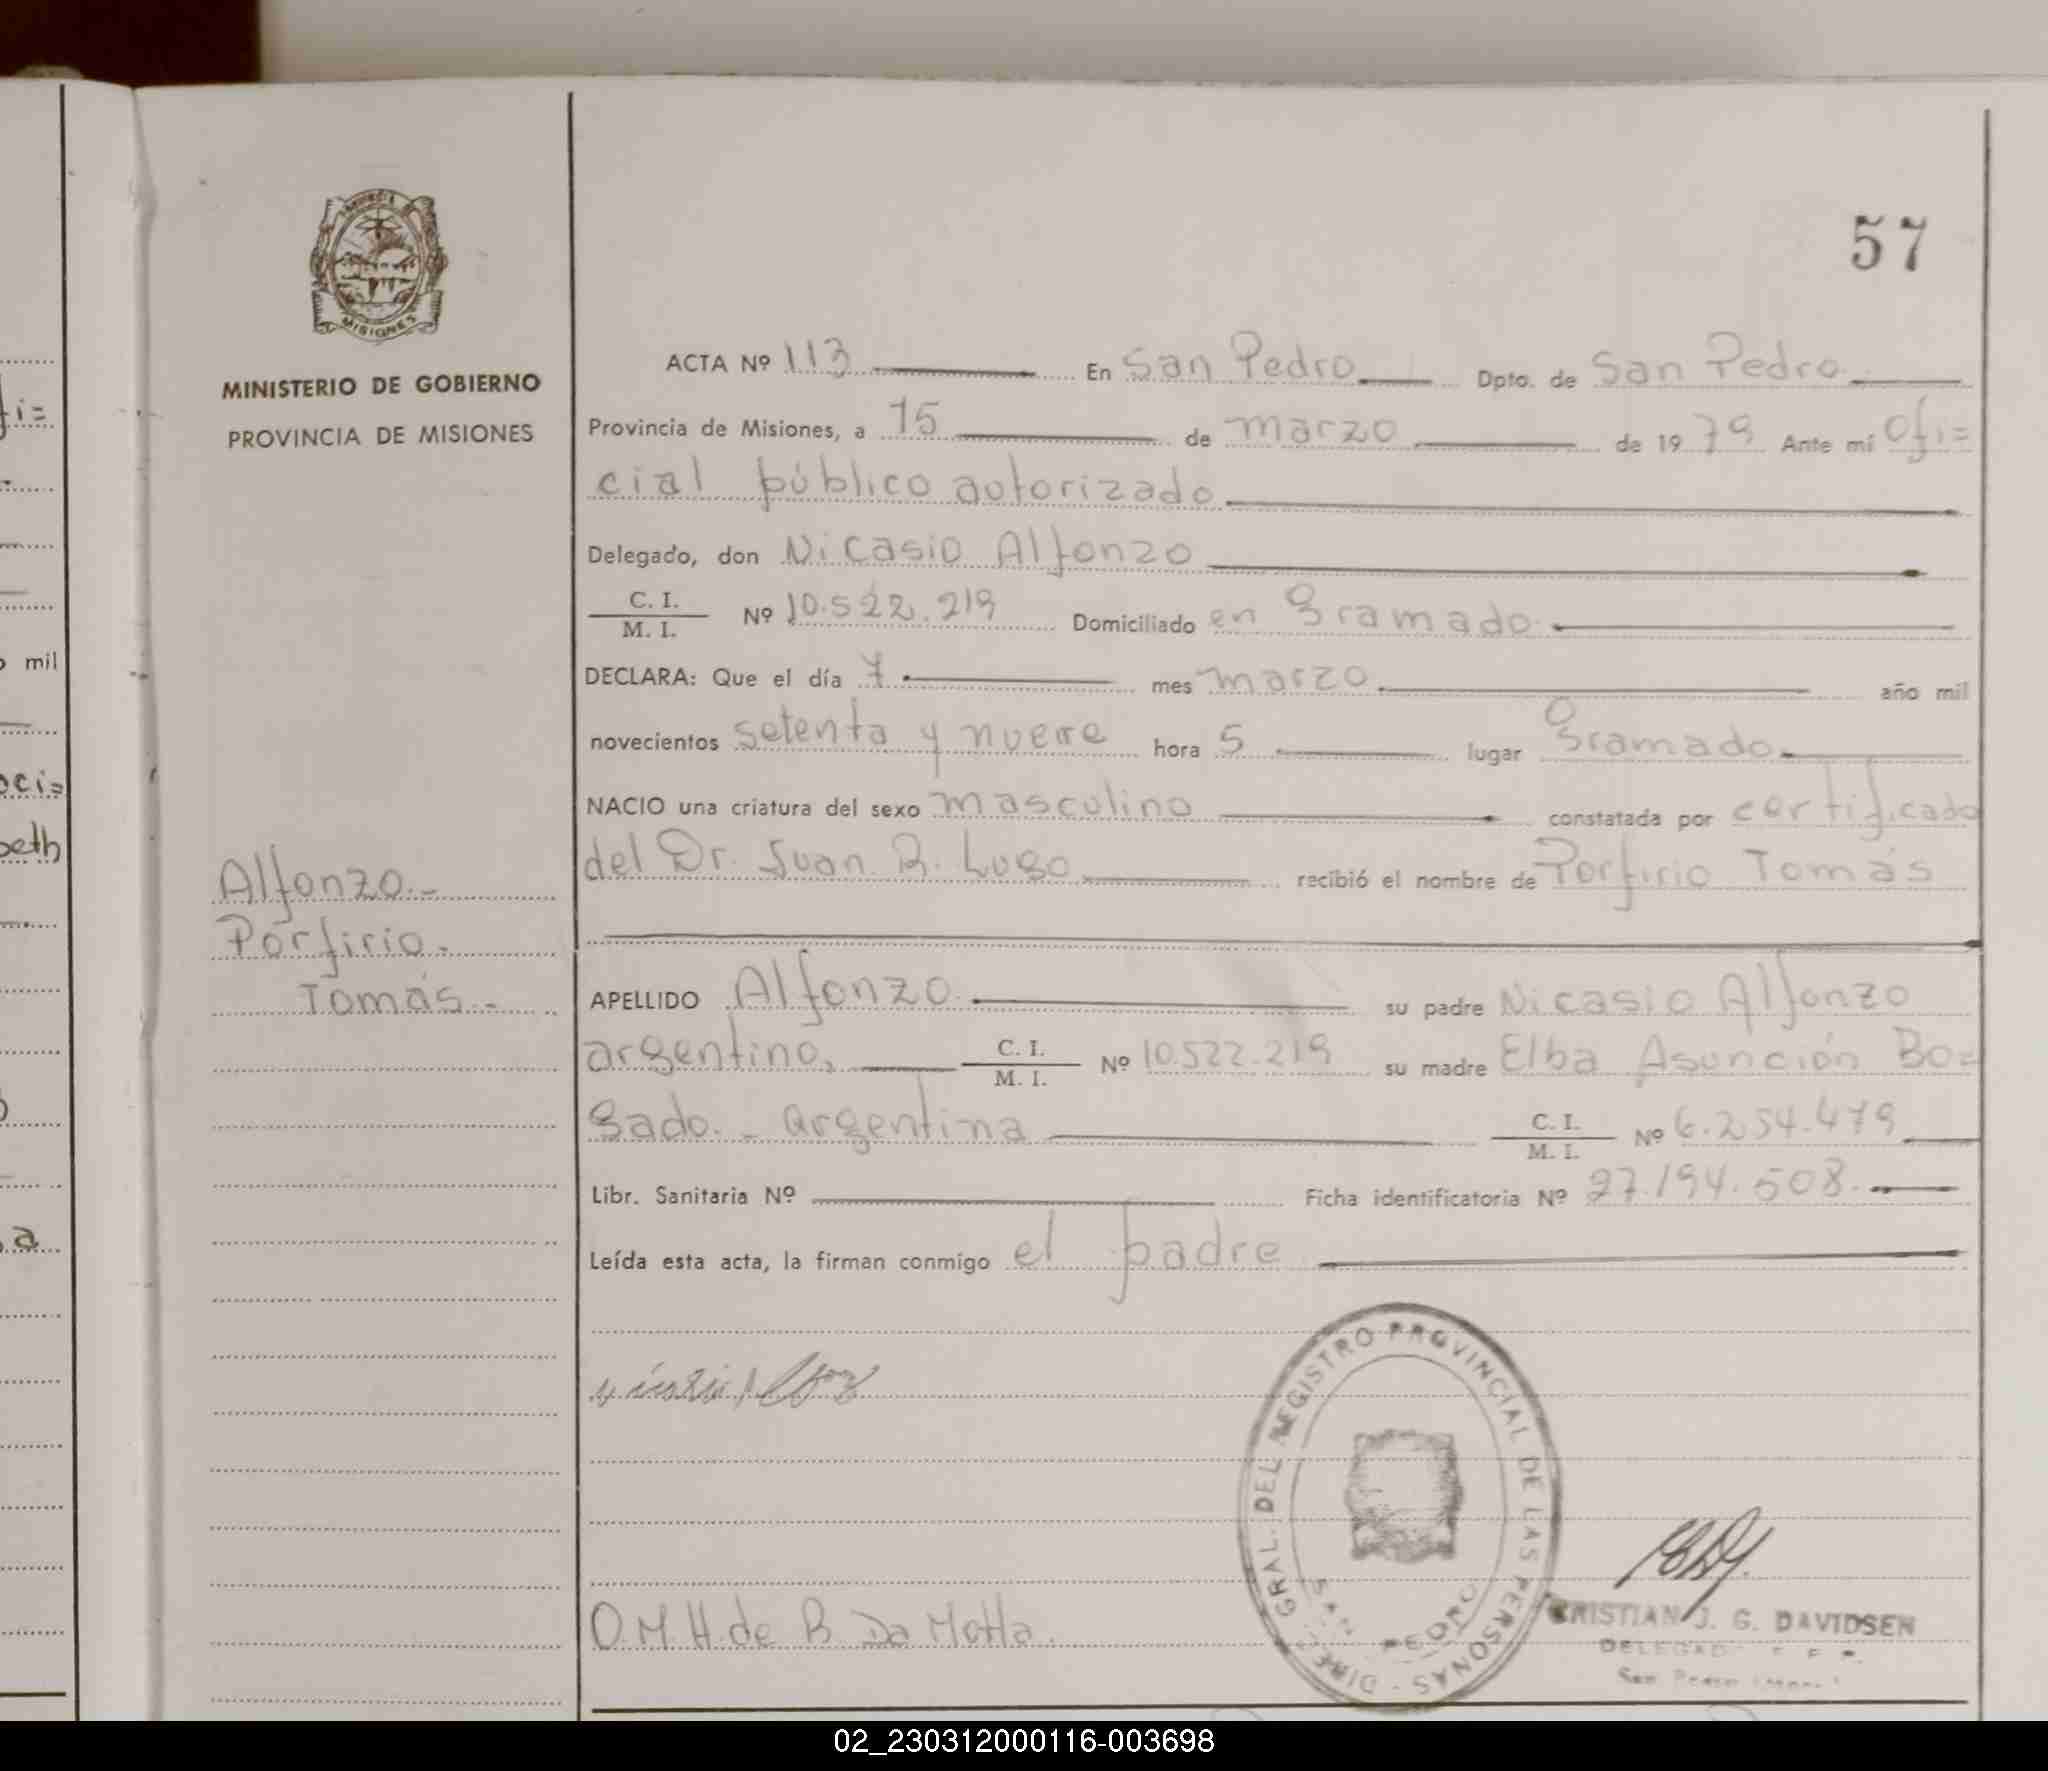 fi=
mil
oci=
beth
a
MISIONES
MINISTERIO DE GOBIERNO
PROVINCIA DE MISIONES
Alfonzo.-
Porfirio.-
Tomás.-
57
ACTA Nº 113 En San Pedro Dpto. de San Pedro
Provincia de Misiones, a 15 de marzo de 1979 Ante mí Ofi=
cial público autorizado
Delegado, don Nicasio Alfonzo
C. I.
M. I. Nº 10.522.219 Domiciliado en Gramado
DECLARA: Que el día 7 mes marzo año mil
novecientos setenta y nueve hora 5 lugar Gramado
NACIO una criatura del sexo masculino constatada por certificado
del Dr. Juan R. Lugo recibió el nombre de Porfirio Tomás
APELLIDO Alfonzo su padre Nicasio Alfonzo
argentino, C. I.
M. I. Nº 10.522.219 su madre Elba Asunción Bo=
gado.- argentina C. I.
M. I. Nº 6.254.479
Libr. Sanitaria Nº Ficha identificatoria Nº 27.194.508.
Leída esta acta, la firman conmigo el padre
DIRE. GRAL. DEL REGISTRO PROVINCIAL DE LAS PERSONAS -
SAN PEDRO
CRISTIAN J. G. DAVIDSEN
DELEGADO
San Pedro
O.M.H. de B. Da Motta.
02_230312000116-003698